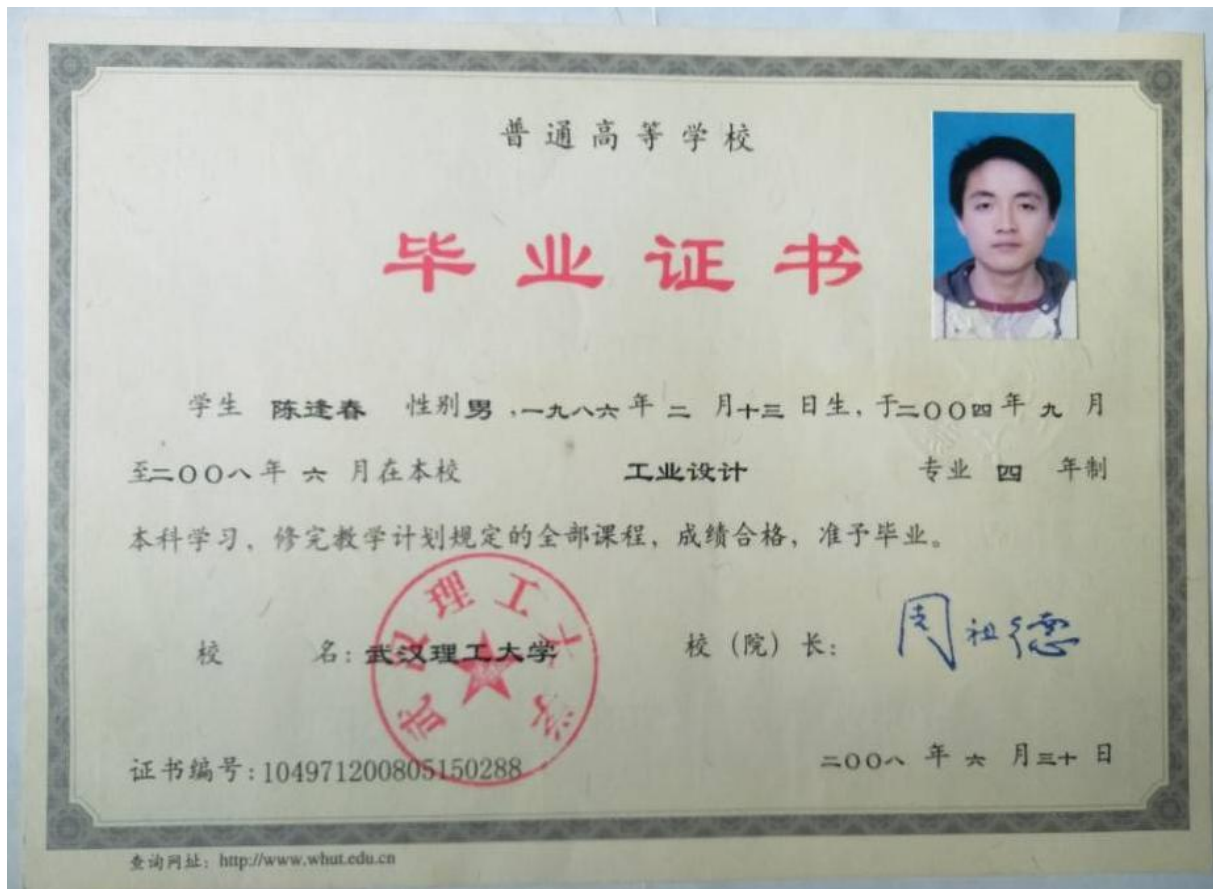 普通高等学校
毕业证书
学生 陈逢春 性别 男 ,一九八六 年 二 月 十三 日生, 于二〇〇四 年 九 月
至二〇〇八 年 六 月在本校 工业设计 专业 四 年制
本科学习、修完教学计划规定的全部课程, 成绩合格, 准予毕业。
校 名: 武汉理工大学 校 (院) 长: 周祖德
武汉理工大学
证书编号: 104971200805150288 二〇〇八 年 六 月三十 日
查询网址: http://www.whut.edu.cn